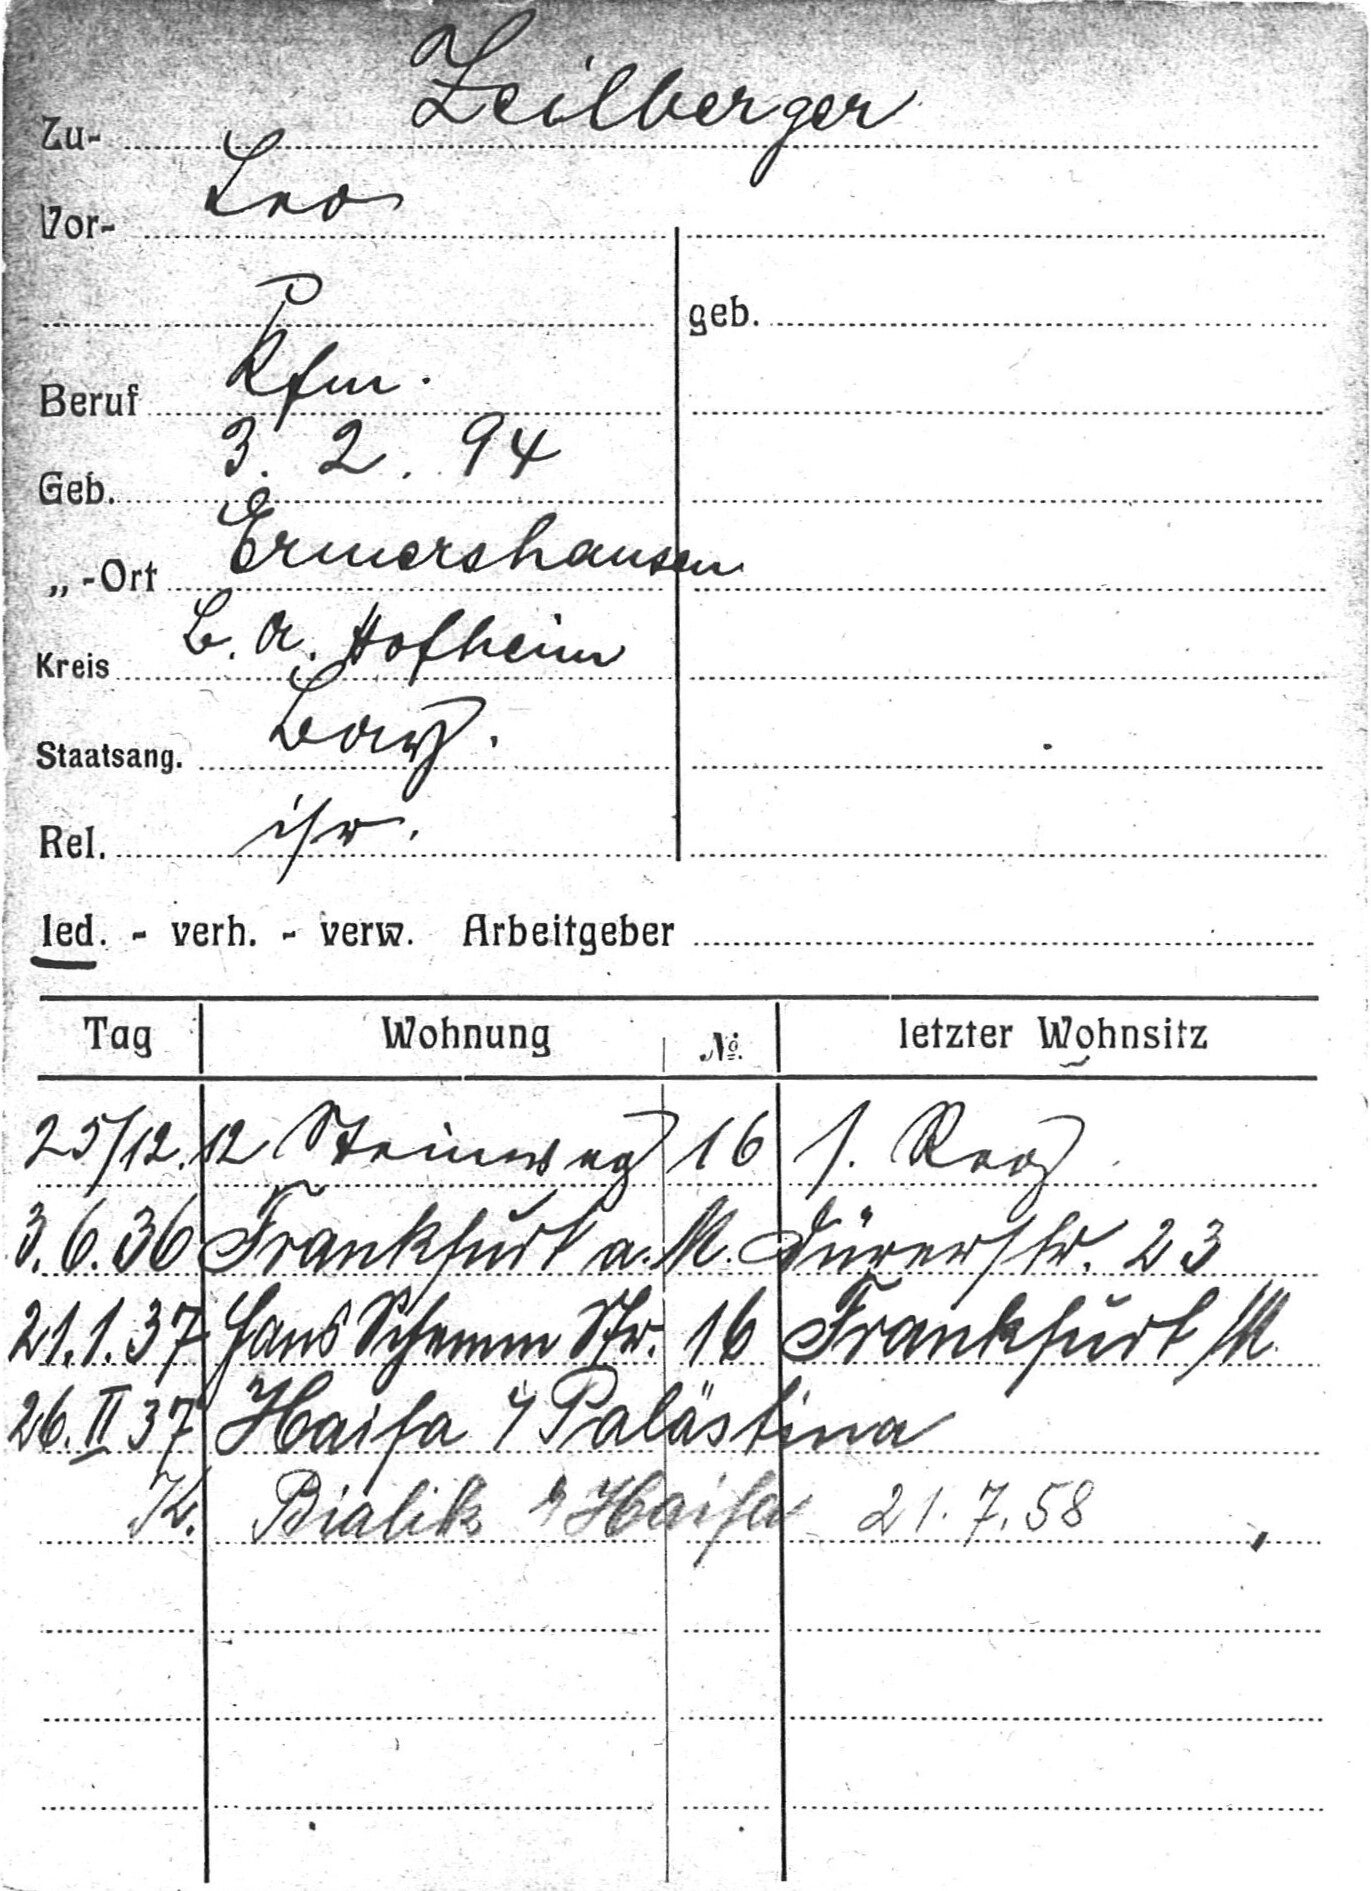 Zu- Zeilberger
Vor- Leo
geb.
Beruf Kfm.
Geb. 3. 2. 94
„ -Ort Ermershausen
Kreis B. A. Hofheim
Staatsang. Bay.
Rel. isr.
led. - verh. - verw. Arbeitgeber
Tag Wohnung No. letzter Wohnsitz
25/12.12 Steinweg 16 s. Reg.
3.6.36 Frankfurt a. M. Dürerstr. 23
21.1.37 Hans Schemm Str. 16 Frankfurt /M.
26. II 37 Haifa / Palästina
K. Bialik / Haifa 21.7.58